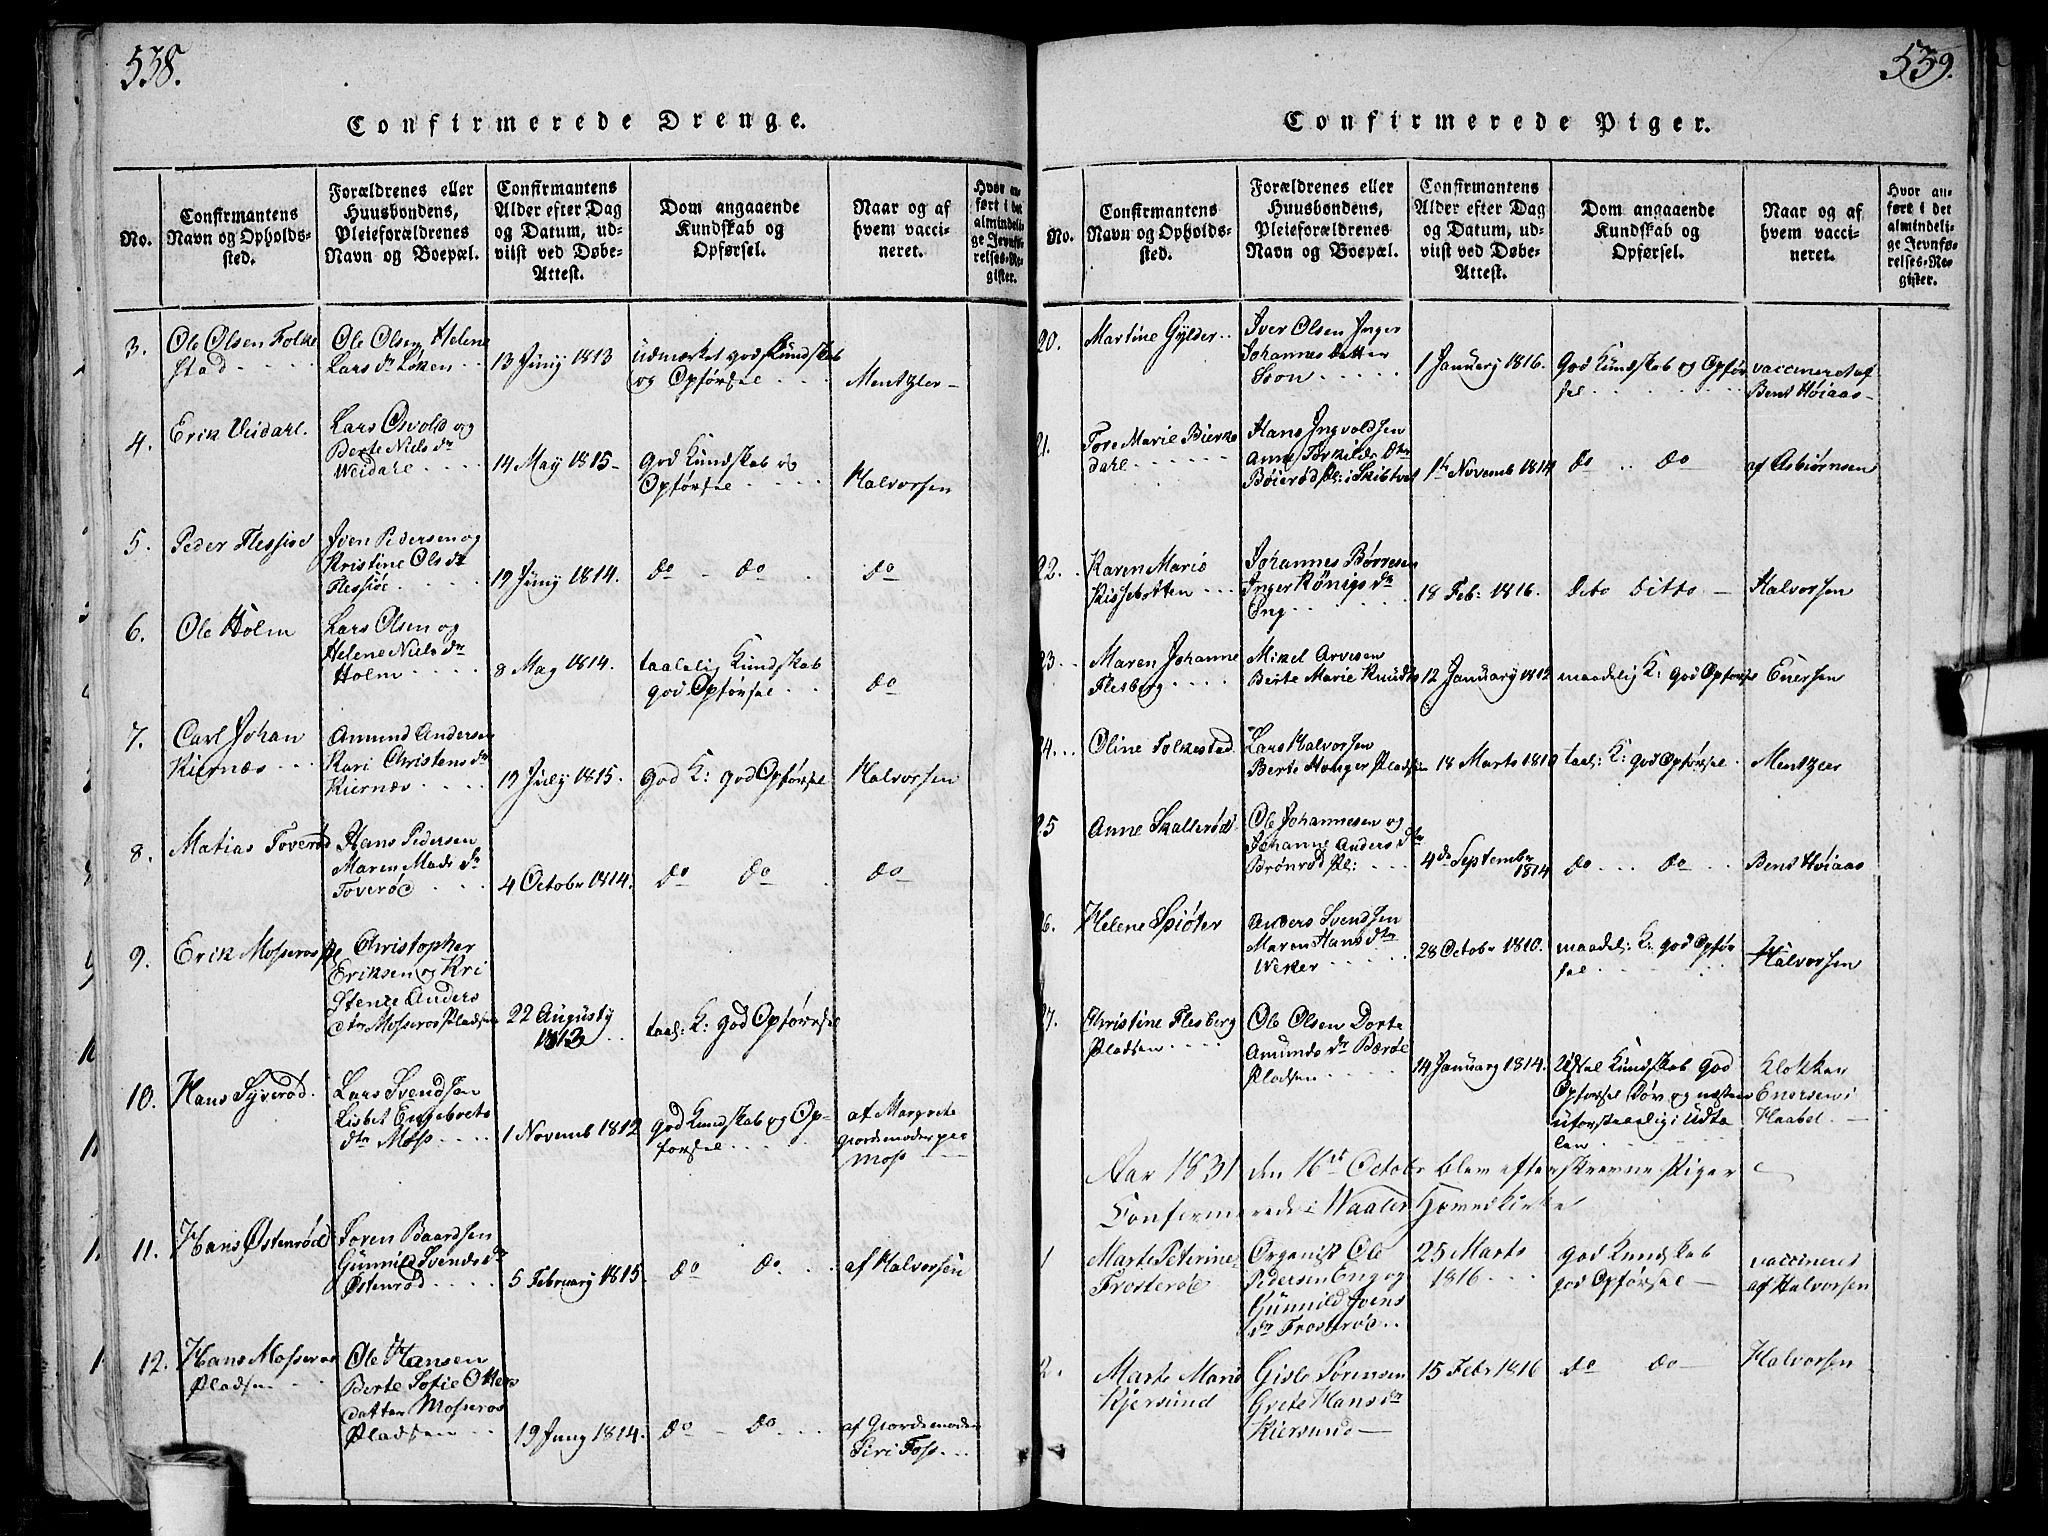 538.
Confirmerede Drenge.
No.
Confirmantens
Navn og Opholds-
sted.
Forældrenes eller
Huusbondens,
Pleieforældrenes
Navn og Boepæl.
Confirmantens
Alder efter Dag
og Datum, ud-
viist ved Døbe-
Attest.
Dom angaaende
Kundskab og
Opførsel.
Naar og af
hvem vacci-
neret.
Hvor an-
ført i det
almindeli-
ge Jevnfø-
relses-Re-
gister.
3. Ole Olsen Folke
stad
Ole Olsen Helene
Lars dr Løken
13 Juny 1813
udmærket god Kundskab
og Opførsel
Mentzler
4. Erik Veidahl.
Lars Osvold og
Berte Niels dr
Weidahl
14 May 1815
god Kundskab og
Opførsel
Halvorsen
5. Peder
Iven Pedersen og
Kristine Ols dr
19 Juny 1814.
do - do
do
6. Ole Holm
Lars Olsen og
Helene Niels dr
Holm
8 May 1814.
taalelig Kundskab
god Opførsel
do
7. Carl Johan
Kiernæs
Amund Andersen
Kari Christens dr
Kiernæs
19 July 1815.
god K: god Opførsel
Halvorsen
8. Matias Toverød
Hans Pedersen
Maren Mads dr
Toverød
4 Octobr 1814.
do do
do
9. Erik Mosseros Pl
Christopher
Eriksen og Kri
stence Anders
dtr Mosseros Pladsen
22 Augusty
1813
taal: K: god Opførsel
10. Hans Syverød.
Lars Svendsen
Lisbet Engebrets
dtr Moss
1 Novemb 1812
god Kundskab og Op-
førsel
af Margrete
giordemoder paa
Moss
11. Hans Østenrød
Søren Baardsen
Gunnild Svends dr
Østenrød
5 February 1815.
do do
af Halvorsen
12. Hans Mosseros
Pladsen
Ole Hansen
Berte Sofie Olsen
datter Mosseros
Pladsen
19 Juny 1814.
do - do
af Giordemoder
Siri Foss
539.
Confirmerede Piger.
No.
Confirmantens
Navn og Opholds-
sted.
Forældrenes eller
Huusbondens,
Pleieforældrenes
Navn og Boepæl.
Confirmantens
Alder efter Dag
og Datum, ud-
viist ved Døbe-
Attest.
Dom angaaende
Kundskab og
Opførsel.
Naar og af
hvem vacci-
neret.
Hvor an-
ført i det
almindeli-
ge Jevnfø-
relses-Re-
gister.
20. Martine Gylder
Iver Olsen Inger
Johannes datter
Soon
1 January 1816.
God Kundskab og Opfør
sel
vaccineret af
Bent Høiaas
21. Tore Marie Bierke
dahl
Hans Ingvaldsen
Anne Torkilds dtr
Böierød Pl: i Skibtvet
1te Novemb 1814
do do
af Asbiørnsen
22. Karen Marie
Kissebotten
Johannes Børresen
Inger Königs dr
Eng
18 Feb: 1816.
Dito Ditto
Halvorsen
23. Maren Johanne
Flesberg
Mikel Arvesen
Berte Marie Knuds
12 January 1812
maadelig K: god Opførsel
Enersen
24. Oline Folkestad
Lars Halvorsen
Berte Pladsen
18 Marts 1810
taal: K: god Opførsel
Mentzler
25 Anne Skallerød
Ole Johannesen og
Johanne Anders dtr
Brønrød Pl:
4de Septembr
1814
do do
Bent Høiaas
26. Helene Spiöter
Anders Svendsen
Maren Hans dtr
Weker
28 Octobr 1810.
maadel: K: god Opfør
sel
Halvorsen
27. Christine Flesberg
Pladsen
Ole Olsen Dorte
Amunds dr Bærøe
Pladsen
14 January 1814.
Udsal Kundskab god
Opførsel Døv og næsten
uforstaaelig i Udta
len
Klokker
Enersen i
Haabøl
Aar 1831 den 16de Octobr blev efterskrevne Piger
Confirmerede i Waaler Hovedkirke
1 Marte Peterine
Frosterød
Organist Ole
Pedersen Eng og
Gunnild Ivens
dr Frosterød
25 Marts
1816
god Kundskab
god Opførsel
vaccineret
af Halvorsen
2. Marte Marie
Kjersund
Gisle Sørensen
Grete Hans dr
Kiersund
15 Febr 1816
do do
Halvorsen